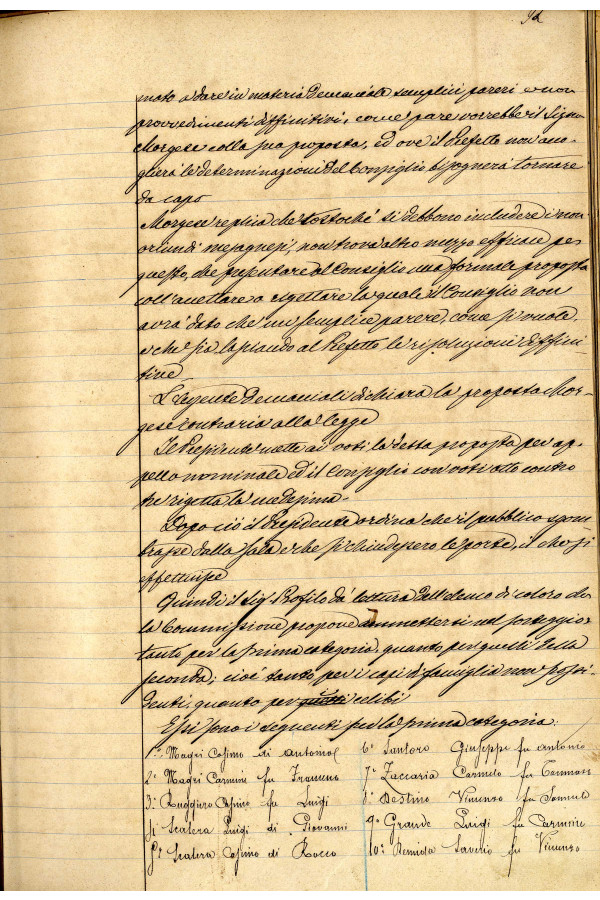 92
mato a dare in materia Demaniale semplici pareri e non
provvedimenti diffinitivi, come pare vorrebbe il Signor
Morgese colla sua proposta, ed ove il Prefetto non acco-
glierà le determinazioni del Consiglio bisognerà tornare
da capo
Morgese replica che tostoché si debbono includere i non
oriundi mesagnesi, non trova altro mezzo efficace per
questo, che presentare al Consiglio una formale proposta
coll'accettare o rigettare la quale il Consiglio non
avrà dato che un semplice parere, come si vuole,
e che sia lasciando al Prefetto le risoluzioni diffini-
tive
L'Agente Demaniale dichiara la proposta Mor-
gese contraria alla legge
Il Presidente mette ai voti la detta proposta per ap-
pello nominale ed il Consiglio con voti otto contro
tre rigetta la medesima.
Dopo ciò il Presidente ordina che il pubblico sgom-
brasse dalla sala e che si chiudessero le porte, il che si
effettuisce
Quindi il Sig. Profilo dà lettura dell'elenco di coloro che
la Commissione propone ammettersi nel sorteggio
tanto per la prima categoria, quanto per quelli della
seconda; cioè tanto per i capi di famiglia non possi-
denti, quanto per celibi
Essi sono i seguenti per la prima categoria:
1° Magrì Cosimo di Antonio
2° Magrì Carmine fu
3° Ruggiero Cosimo fu Luigi
4° Scalera Luigi di Giovanni
5° Scalera Cosimo di Rocco
6° Santoro Giuseppe fu Antonio
7° Zaccaria Carmelo fu Tommaso
8° Destino Vincenzo fu Samuele
9° Grande Luigi fu Carmine
10° Saverio fu Vincenzo